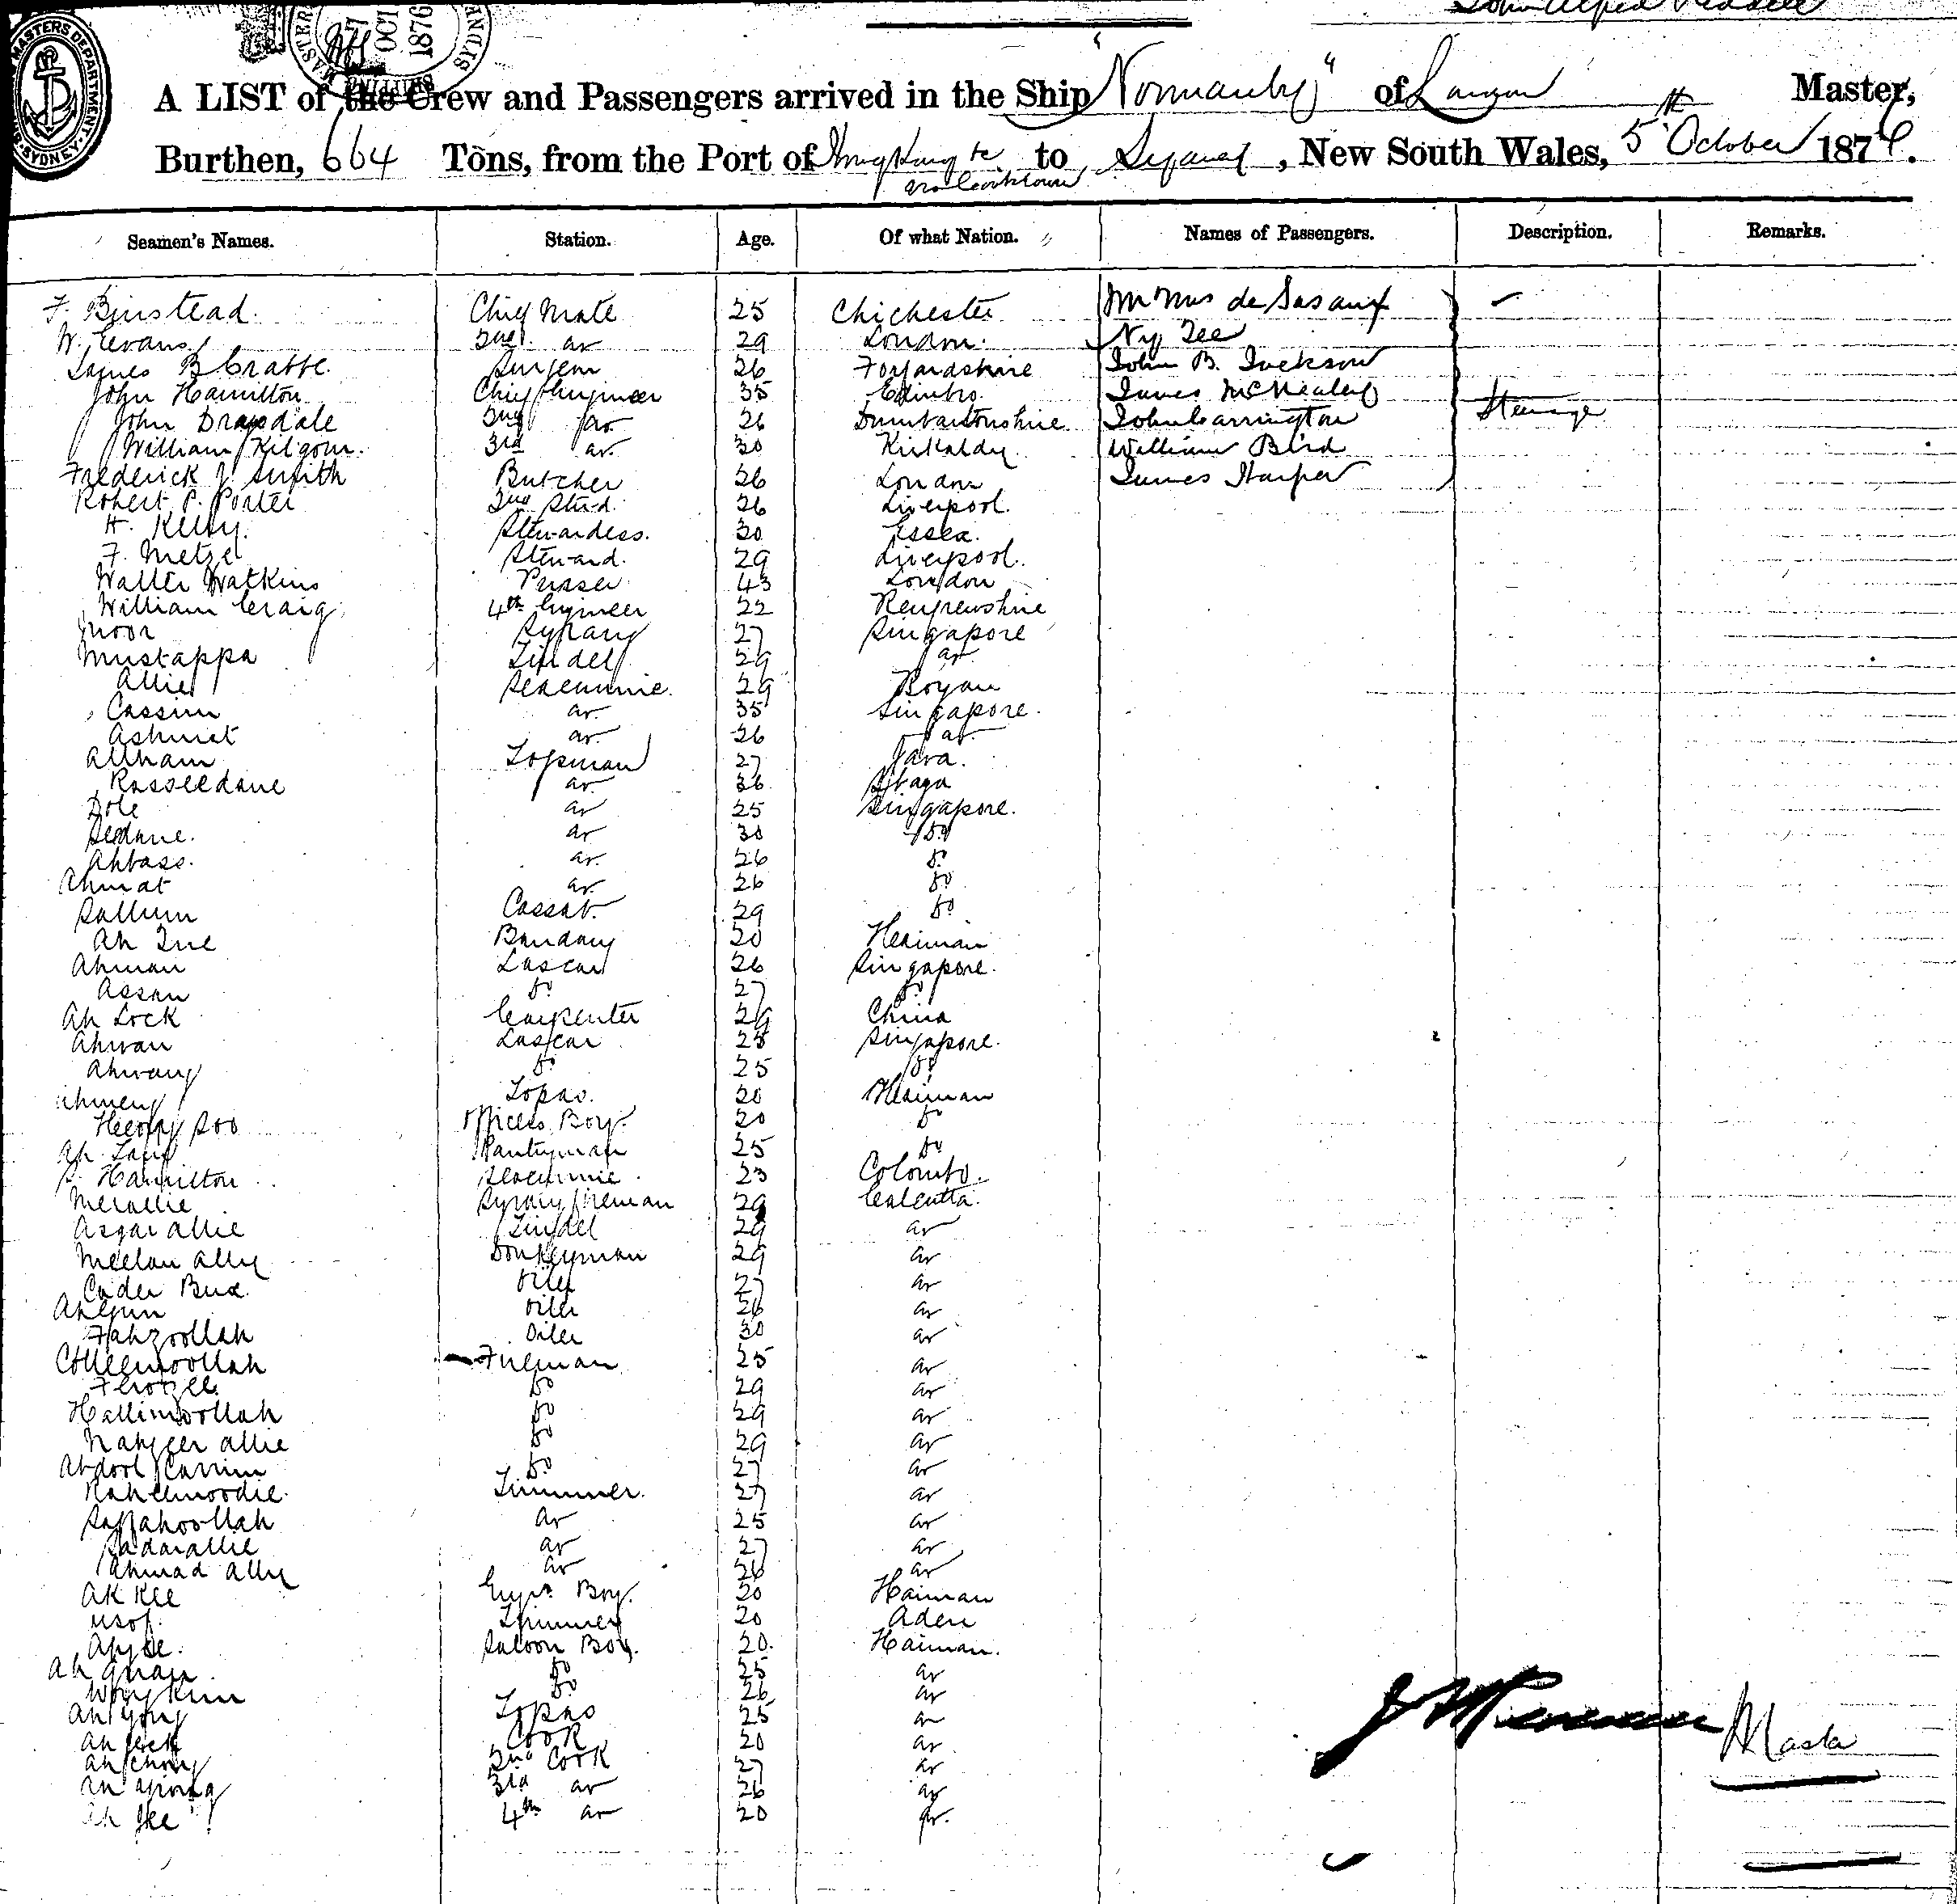 MASTERS DEPARTMENT
SYDNEY
OCT
1876
A LIST of the Crew and Passengers arrived in the Ship "Normanby" of Master,
Burthen, 664 Tons, from the Port of Hong Kong to Sydney, New South Wales, 5th October 1876.
via Cooktown
Seamen's Names. Station. Age. Of what Nation. Names of Passengers. Description. Remarks.
F. Binstead. Chief Mate 25 Chichester Mr Mrs de
W. Evans 2nd do 29 London. Ny Tee
James B Crabbe. Surgeon 26 Forfardshire John B. Jackson
John Hamilton Chief Engineer 35 Edinbro. James McNealey
John Drysdale 2nd do 26 Dumbartonshire John Carrington Steerage
William Kilgour. 3rd do. 30 Kirkaldy William Bird
Frederick J. Smith Butcher 26 London James Harper
Robert P. Porter 2nd Stwd. 26 Liverpool.
H. Kelly. Stewardess. 30 Essex.
F. Metzel Steward. 29 Liverpool.
Walter Watkins Purser 43 London
William Craig 4th Engineer 22 Renfrewshire
Noor Syrang 27 Singapore
Mustappa Tindel 29 do
Allie Seacunnie. 29 Boyan
Cassim do. 35 Singapore.
Ashmet do. 26 do
Allham Topman 27 Java.
Rasseedane do 36
Dole do 25 Singapore.
Sedane. do 30 Do
Abbass. do. 26 Do
Ahmat do. 26 Do
Sallum Cassab. 29 Do
Ah Bandary 20 Heainan
Ahman Lascar 26 Singapore.
Assan Do 27 Do
Ah Lock Carpenter 29 China
Ahwan Lascar 25 Singapore.
Ahwang Do 25 Do
Ahmeng Topas. 20 Heainan
Soo Officers Boy. 20 Do
Ah Pantryman 25 Do
S. Hamilton Seacunnie 23 Colombo.
Merallie Syrang fireman 29 Calcutta.
Asgar allie Tindel 29 do
Meelan Ally Donkeyman 29 do
Cader Bux. Oiler 27 do
Oiler 26 do
Fahzoollah Oiler 30 do
Colleemoollah Fireman 25 do
Do 29 do
Hallimoollah Do 29 do
allie Do 29 do
Abdool Carrim Do 27 do
Raheemoodie. Trimmer. 27 do
Saffahoollah do 25 do
Sadarallie do 27 do
Ahmad Ally do 26 do
Ak Kee Engrs Boy. 20 Hainan
Usof. Trimmer 20 Aden
Saloon Boy. 20. Hainan.
Ah Do 25 do
Wong Kum Do 26 do
Ah Yong Topas 25 do
Ah Cook 20 do
Ah Chong 2nd Cook 27 do
3rd do 26 do
Ah 4th do 20 do.
Master